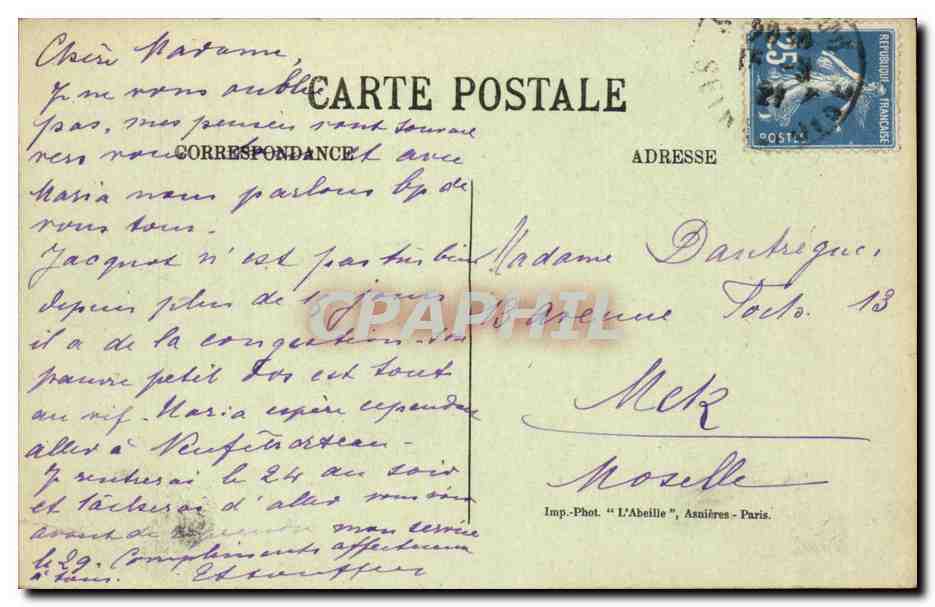 Chère Madame,
Je ne vous oublie
pas, mes pensées vont souvent
vers vous et avec
Maria nous parlons bp de
vous tous.
Jacquot n'est pas très bien
depuis plus de jours
il a de la congestion. Son
pauvre petit dos est tout
au vif. Maria espère cependant
aller à Neufchateau.
Je rentrerai le 24 au soir
et tâcherai d'aller vous voir
avant de mon service
le 29. Compliments affectueux
à tous.
CARTE POSTALE
CORRESPONDANCE
ADRESSE
Madame Dautrégue
13 avenue Foch. 13
Metz
Moselle
Imp.-Phot. "L'Abeille", Asnières - Paris.
REPUBLIQUE FRANÇAISE
25
POSTES
SEINE
CPAPHIL